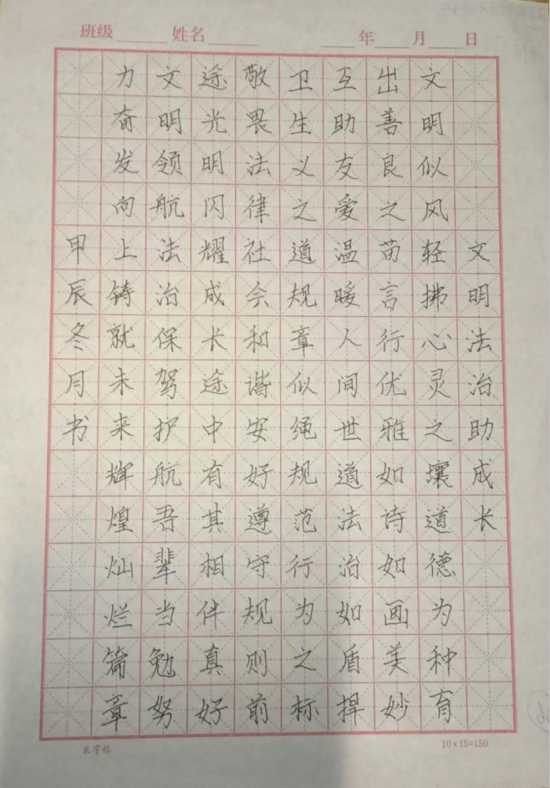 班级 姓名 年 月 日
文明法治助成长
文明似风轻拂心灵之壤道德为种育
出善良之苗言行优雅如诗如画美妙
互助友爱温暖人间世道法治如盾捍
卫生义之道规章似绳规范行为之标
敬畏法律社会和谐安好遵守规则前
途光明闪耀成长途中有其相伴真好
文明领航法治保驾护航吾辈当勉努
力奋发向上铸就未来辉煌灿烂篇章
甲辰冬月书
米字格 10×15=150